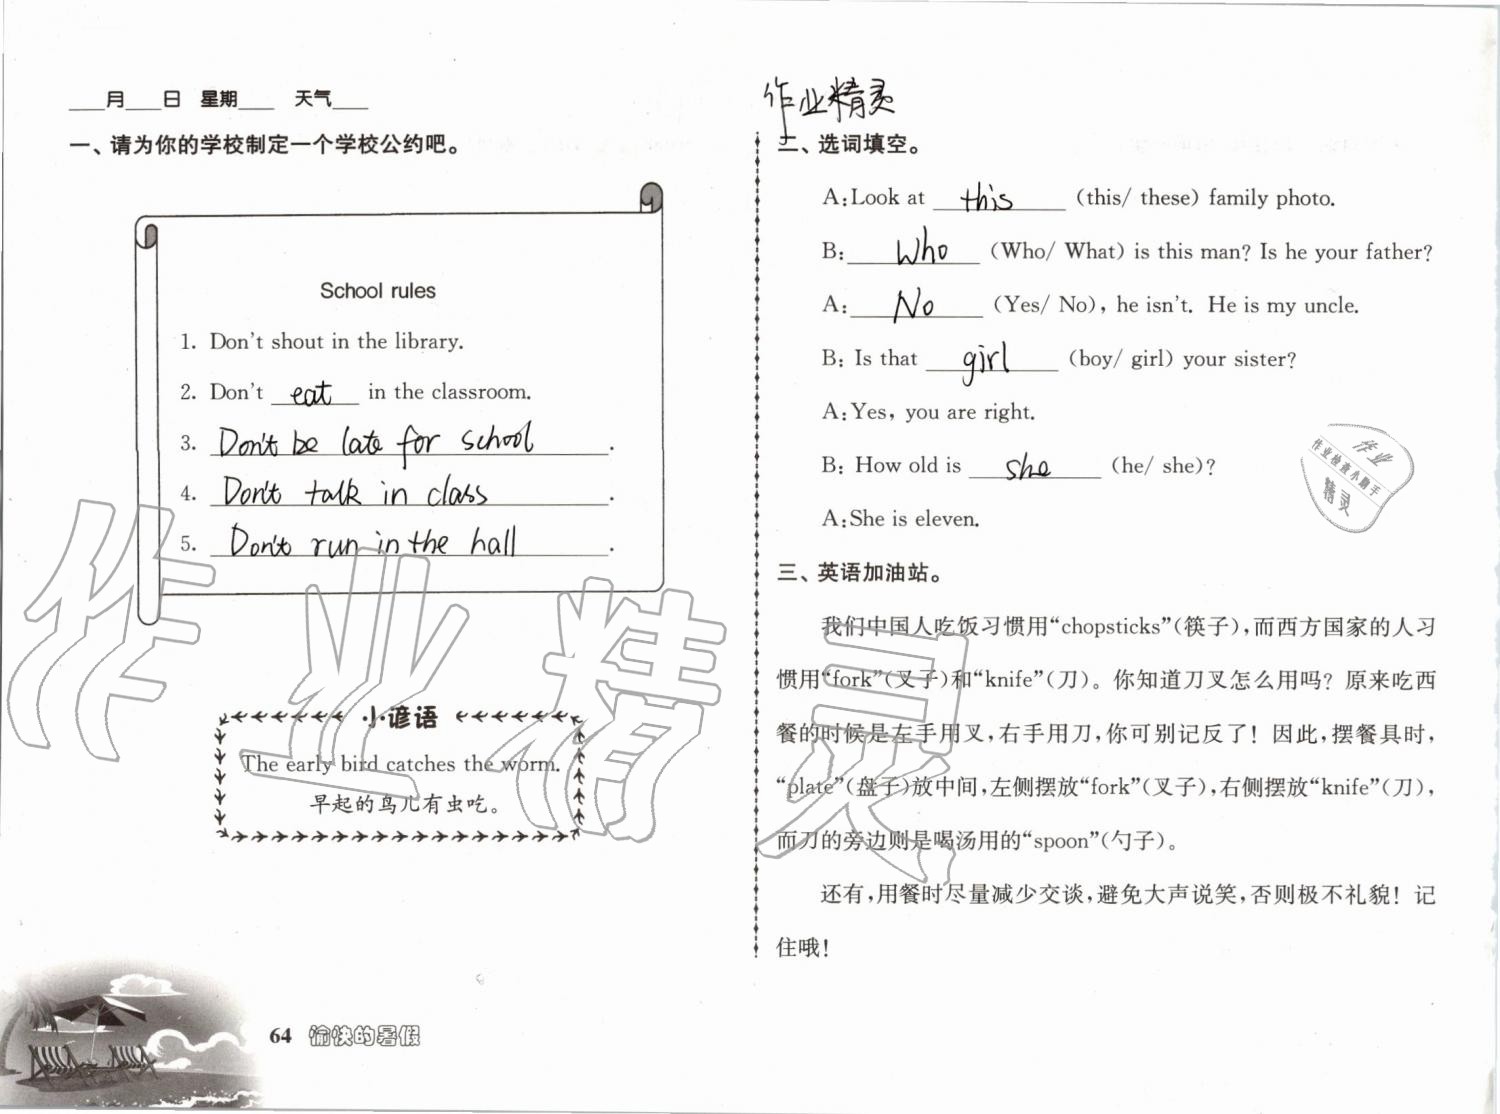 ____月____日 星期____ 天气____
一、请为你的学校制定一个学校公约吧。
School rules
1. Don't shout in the library.
2. Don't eat in the classroom.
3. Don't be late for school.
4. Don't talk in class.
5. Don't run in the hall.
小谚语
The early bird catches the worm.
早起的鸟儿有虫吃。
64 愉快的暑假
作业精灵
二、选词填空。
A:Look at this (this/ these) family photo.
B: Who (Who/ What) is this man? Is he your father?
A: No (Yes/ No), he isn't. He is my uncle.
B: Is that girl (boy/ girl) your sister?
A:Yes, you are right.
B: How old is she (he/ she)?
A:She is eleven.
作业
作业检查小助手
精灵
三、英语加油站。
我们中国人吃饭习惯用“chopsticks”(筷子),而西方国家的人习
惯用“fork”(叉子)和“knife”(刀)。你知道刀叉怎么用吗? 原来吃西
餐的时候是左手用叉,右手用刀,你可别记反了! 因此,摆餐具时,
“plate”(盘子)放中间,左侧摆放“fork”(叉子),右侧摆放“knife”(刀),
而刀的旁边则是喝汤用的“spoon”(勺子)。
还有,用餐时尽量减少交谈,避免大声说笑,否则极不礼貌! 记
住哦!
作业精灵